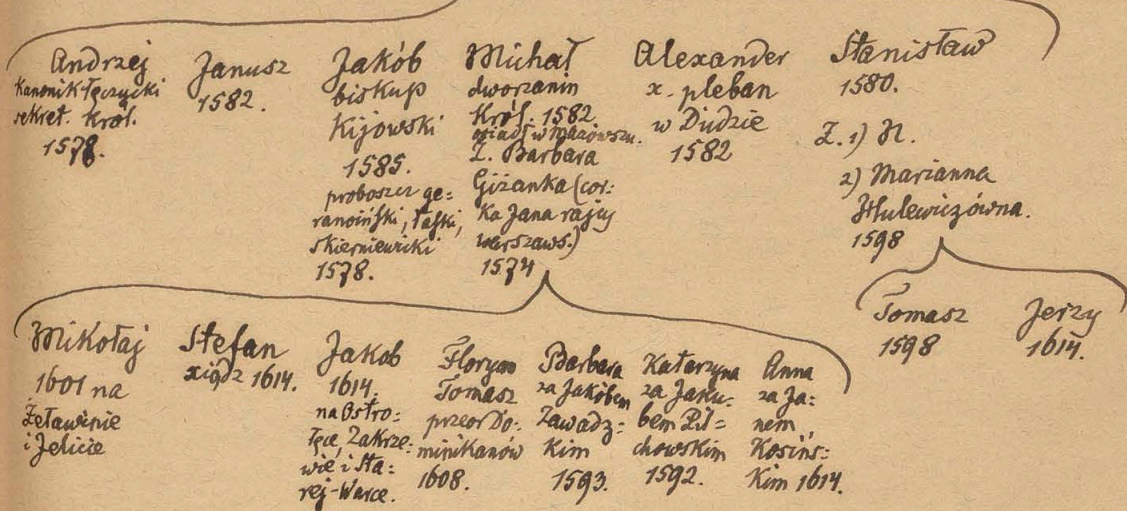 Andrzej
Kanonik Łęczycki
sekret. Król.
1578.
Janusz
1582.
Jakób
biskup
Kijowski
1585.
proboszcz ge=
ranoiński, łaski,
skierniewicki
1578.
Michał
dworzanin
Król. 1582.
osiadł w Mazowszu.
Ż. Barbara
Giżanka (cór=
ka Jana rajcy
warszaws.)
1574
Alexander
x. pleban
w Dudzie
1582
Stanisław
1580.
Ż. 1) N.
2) Marianna
Hulewiczówna.
1598
Mikołaj
1601 na
Żelawinie
i Jelicie
Stefan
xiądz 1614.
Jakob
1614.
na Ostro=
łęce, Zakrze=
wie i Sta=
rej-Warce.
Floryan
Tomasz
przeor Do=
minikanów
1608.
Barbara
za Jakóbem
Zawadz=
kim
1593.
Katarzyna
za Jaku=
bem Pil=
chowskim
1592.
Anna
za Ja=
nem
Kosińs=
kim 1614.
Tomasz
1598
Jerzy
1614.